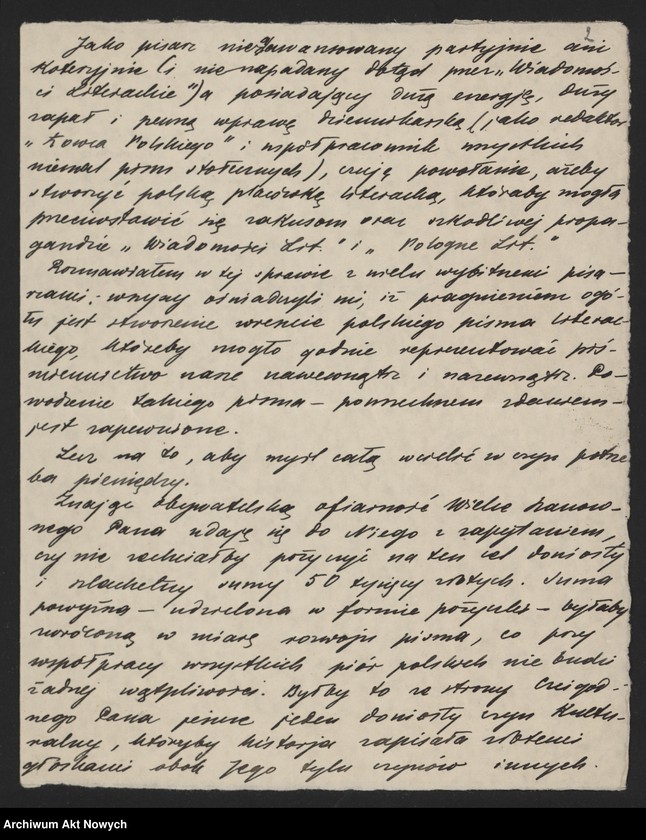 2
Jako pisarz niezawansowany partyjnie ani
koteryjnie (i nie napadany dotąd przez „Wiadomoś-
ci Literackie") a posiadający dużą energję, duży
zapał i pewną wprawę dziennikarską (jako redaktor
„Łowca Polskiego" i współpracownik wszystkich
niemal pism stołecznych), czuję powołanie, ażeby
stworzyć polską placówkę literacką, któraby mogła
przeciwstawić się zakusom oraz szkodliwej propa-
gandzie „Wiadomości Lit." i „Pologne Lit."
Rozmawiałem w tej sprawie z wielu wybitnemi pisa-
rzami; wszyscy oświadczyli mi, iż pragnieniem ogó-
łu jest stworzenie wreszcie polskiego pisma literac-
kiego, któreby mogło godnie reprezentować piś-
miennictwo nasze nawewnątrz i nazewnątrz. Po-
wodzenie takiego pisma – powszechnem zdaniem –
jest zapewnione.
Lecz na to, aby myśl całą wcielić w czyn potrze
ba pieniędzy.
Znając obywatelską ofiarność Wielce Szanow-
nego Pana udaję się do Niego z zapytaniem,
czy nie zechciałby pożyczyć na ten cel doniosły
i szlachetny sumy 50 tysięcy złotych. Suma
powyższa – udzielona w formie pożyczki – byłaby
zwróconą w miarę rozwoju pisma, co przy
współpracy wszystkich piór polskich nie budzi
żadnej wątpliwości. Byłby to ze strony Czcigod-
nego Pana jeszcze jeden doniosły czyn kultu-
ralny, któryby historja zapisała złotemi
głoskami obok Jego tylu czynów innych.
Archiwum Akt Nowych